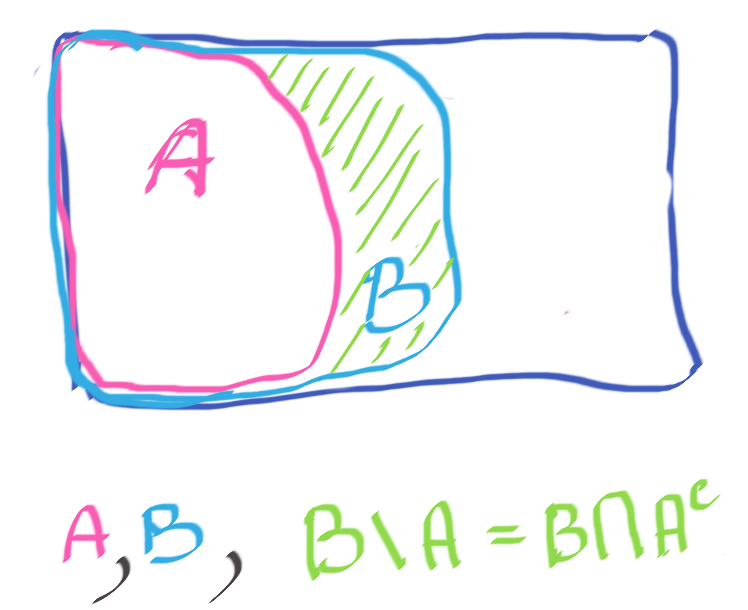 A
B
A, B, B\A = B∩Aᶜ